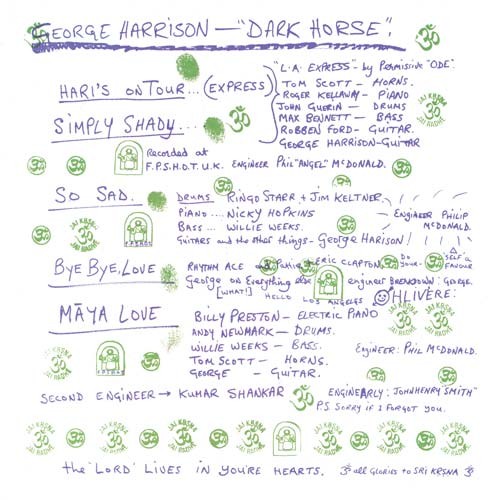 GEORGE HARRISON — "DARK HORSE".
"L.A. EXPRESS" - by Permissive "ODE".
HARI'S ON TOUR... (EXPRESS)
TOM SCOTT - HORNS.
ROGER KELLAWAY - PIANO
JOHN GUERIN - DRUMS
MAX BENNETT - BASS
ROBBEN FORD - GUITAR.
GEORGE HARRISON - GUITAR
SIMPLY SHADY...
Recorded at
F.P.S.H.O.T. U.K. ENGINEER PHIL "ANGEL" McDONALD.
SO SAD.
DRUMS RINGO STARR + JIM KELTNER.
PIANO.... NICKY HOPKINS
BASS... WILLIE WEEKS.
GUITARS and the other things - GEORGE HARISON!
ENGINEER PHILIP
McDONALD.
BYE BYE, LOVE
RHYTHM ACE and Pattie + ERIC CLAPTON.
DO YOUR SELF A FAVOUR
George on Everything else
[WHAT!] HELLO LOS ANGELES
engineer BREAKDOWN: GEORGE.
OHLIVERE:
MĀYA LOVE
BILLY PRESTON - ELECTRIC PIANO
ANDY NEWMARK - DRUMS.
WILLIE WEEKS - BASS.
TOM SCOTT - HORNS.
GEORGE - GUITAR.
ENGINEER: PHIL McDONALD.
SECOND ENGINEER → KUMAR SHANKAR
ENGINEARLY: JOHNHENRY "SMITH"
P.S. SORRY if I FORGOT YOU.
JAI KRSNA
ॐ
JAI RADHE
F.P.S.H.O.T.
the 'LORD' LIVES IN YOU'RE HEARTS. ॐ all GLORIES to SRI KRSNA ॐ